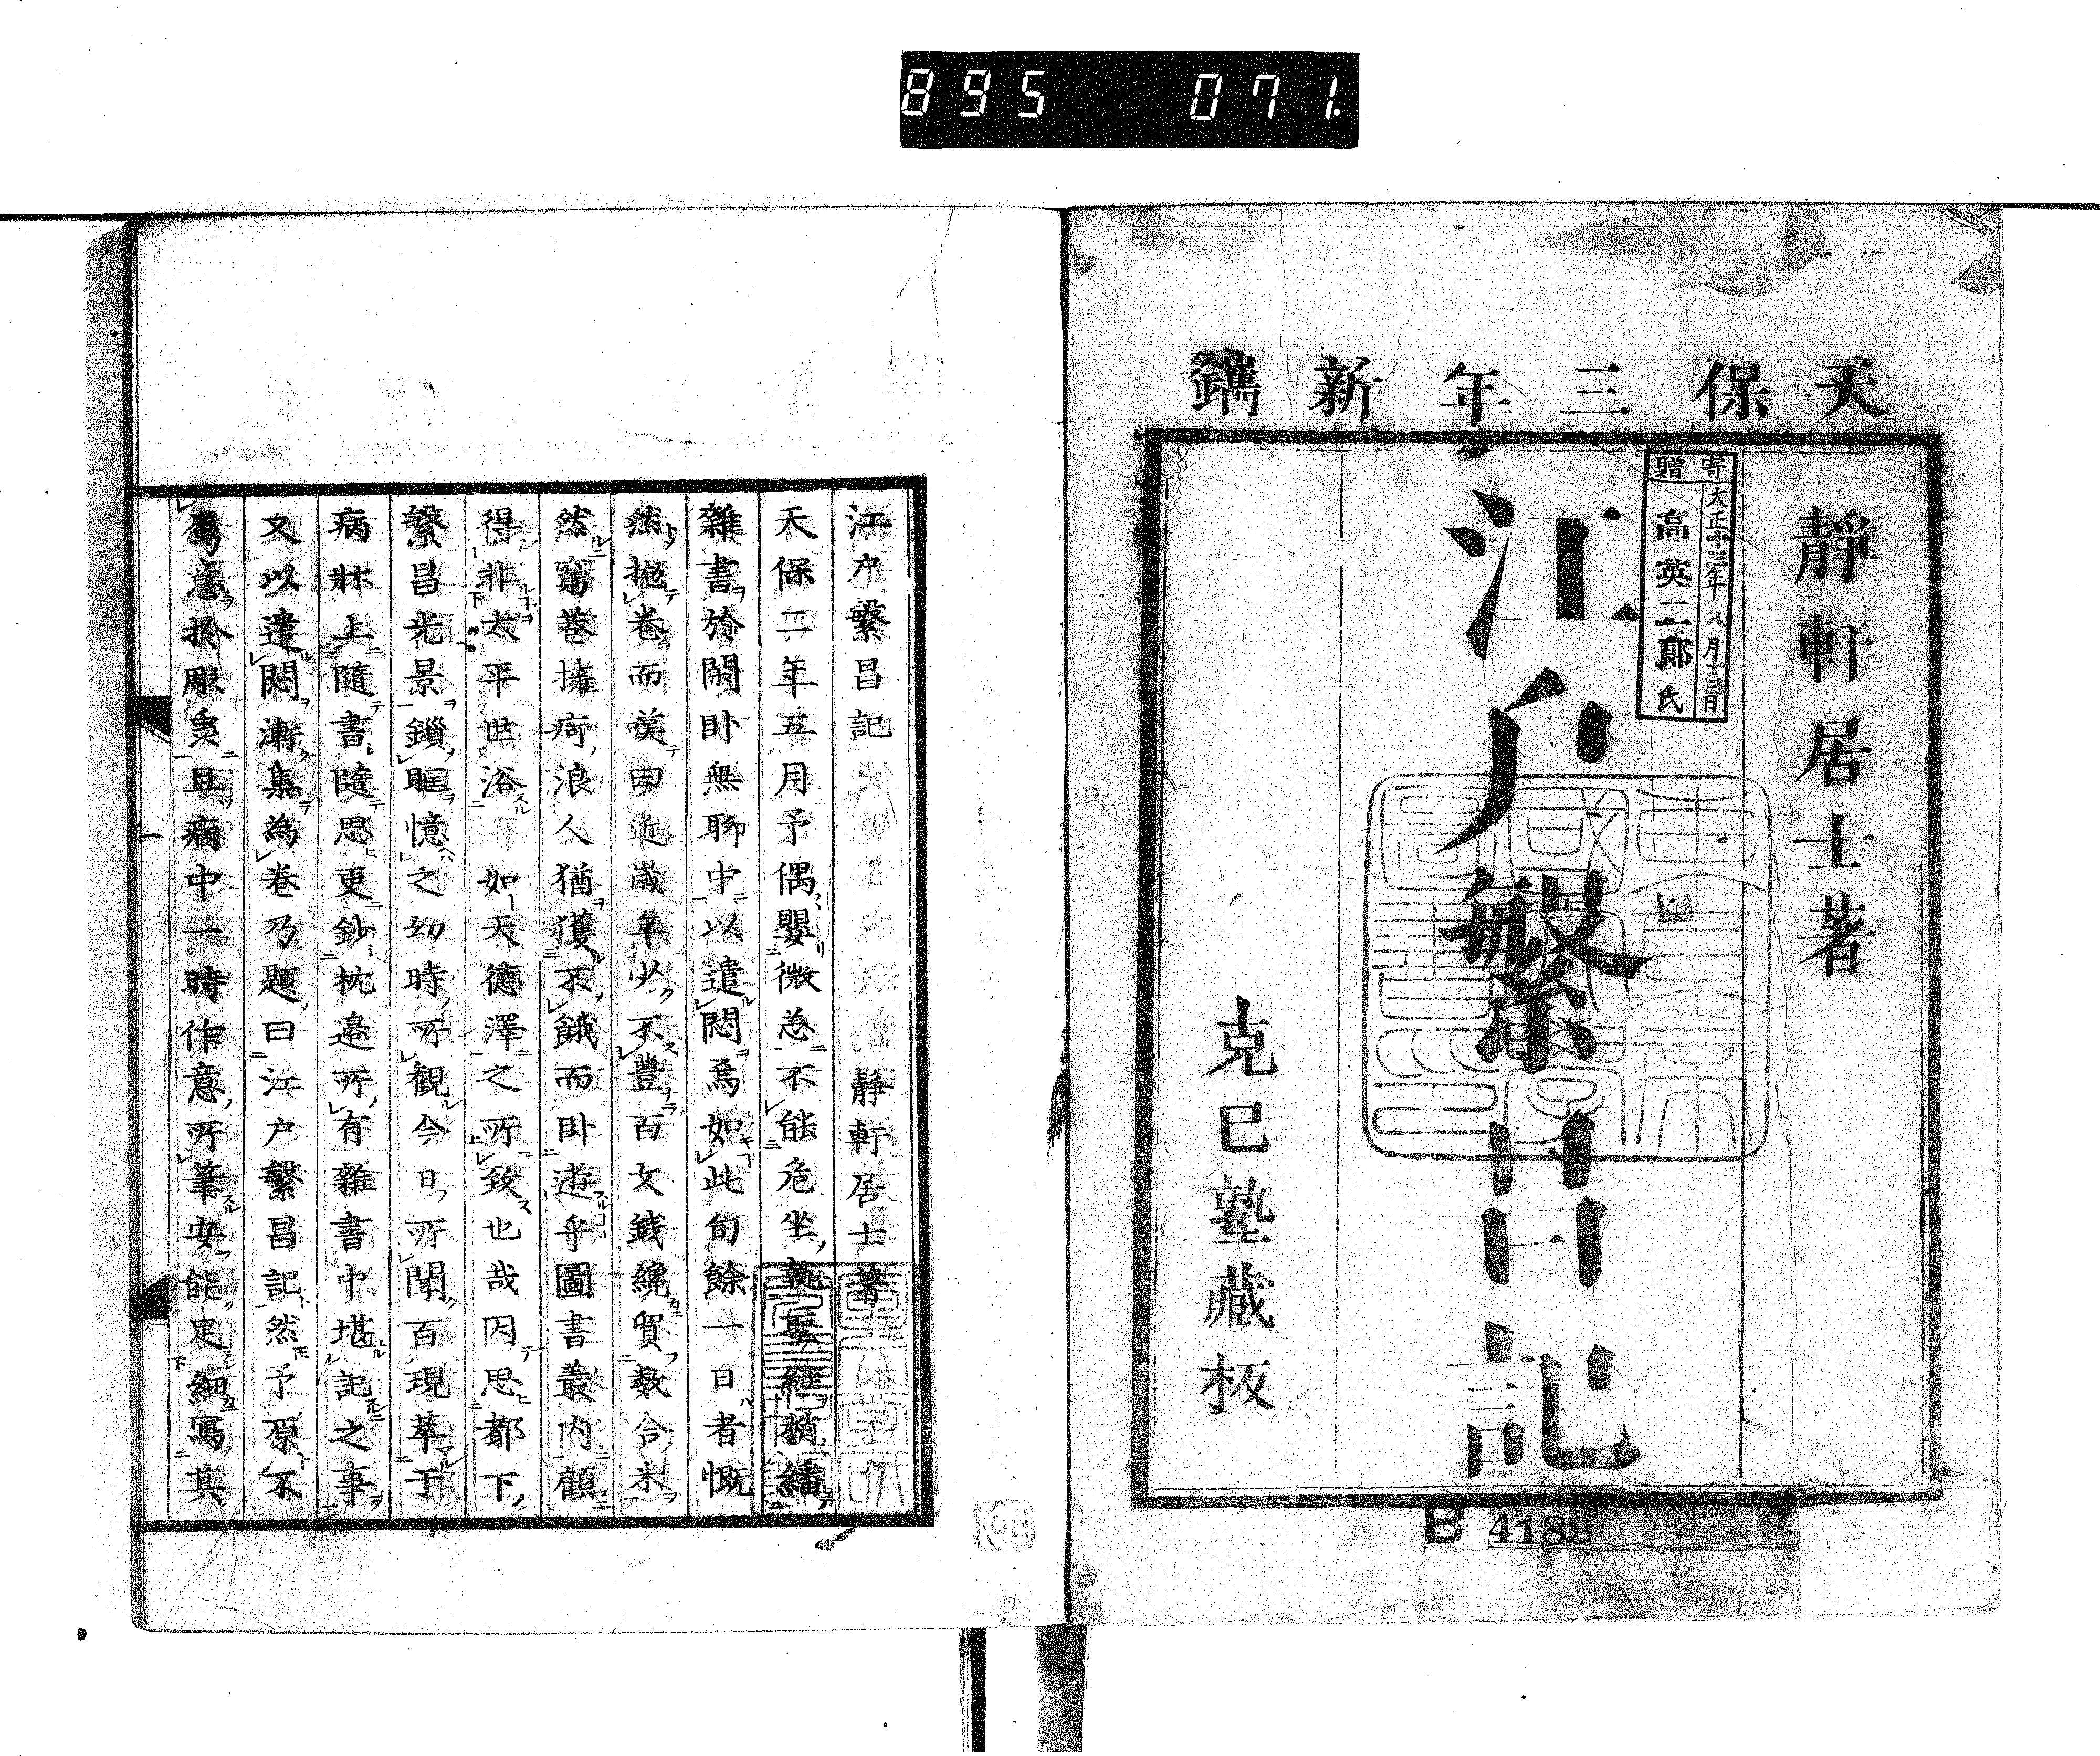 895 071.
天保三年新鐫
靜軒居士著
寄贈
大正十三年八月十三日
高英二郎氏
江戶繁昌記
克己塾藏板
B 4189
江戶繁昌記
靜軒居士著
天保二年五月予偶嬰微恙不能危坐執聖經稍繙
雜書於閑臥無聊中以遣悶焉如此旬餘一日者慨
然抛卷而嘆曰近歲年少不豐百文錢纔買数合米
然窮巷擁痾浪人猶獲不餓而臥遊乎圖書叢內顧
得非太平世浴如天德澤之所致也哉因思都下
繁昌光景鎖眶憶之幼時所觀今日所聞百現萃于
病牀上隨書隨思更鈔枕邊所有雜書中堪記之事
又以遣悶漸集為卷乃題曰江戶繁昌記然予原不
屬意於彫蟲且病中一時作意所筆安能定細寫其